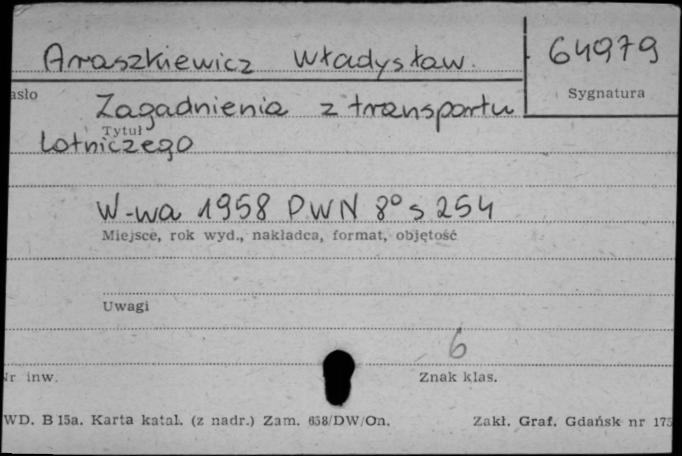 Araszkiewicz Władysław.
64979
Sygnatura
asło
Zagadnienia z transportu
Tytuł
Lotniczego
W-wa 1958 PWN 8° s 254
Miejsce, rok wyd., nakładca, format, objętość
Uwagi
6
Nr inw.
Znak klas.
WD. B 15a. Karta katal. (z nadr.) Zam. 658/DW/On.
Zakł. Graf. Gdańsk nr 175